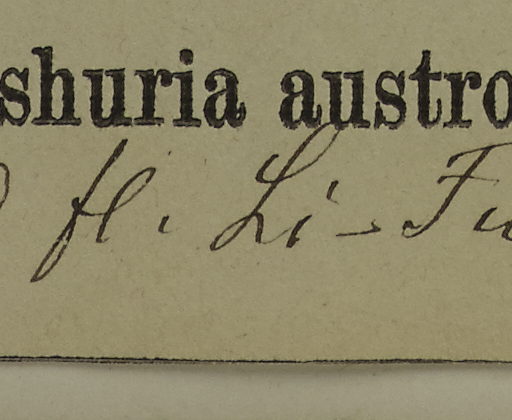 shuria austro
fl. Li-Fu